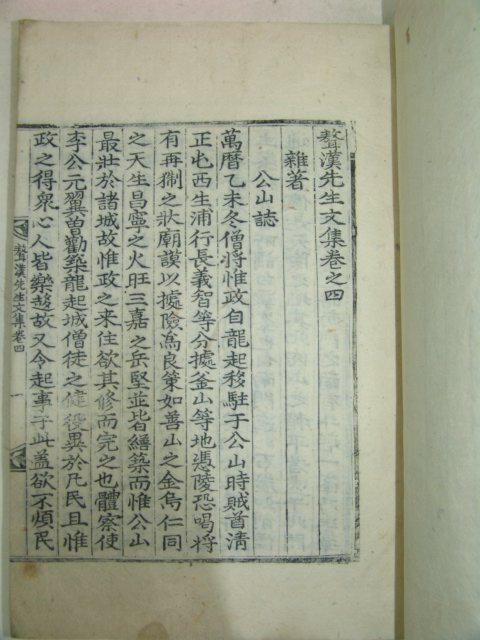 鰲漢先生文集卷之四
雜著
公山誌
萬曆乙未冬僧將惟政自龍起移駐于公山時賊酋淸
正屯西生浦行長義智等分據釜山等地憑陵恐喝將
有再猘之狀廟謨以據險爲良策如善山之金烏仁同
之天生昌寧之火旺三嘉之岳堅並皆繕築而惟公山
最壯於諸城故惟政之來住欲其修而完之也體察使
李公元翼曽勸築龍起城僧徒之健役異於凡民且惟
政之得衆心人皆樂趍故又令起事于此盖欲不煩民
鰲漢先生文集卷四
一